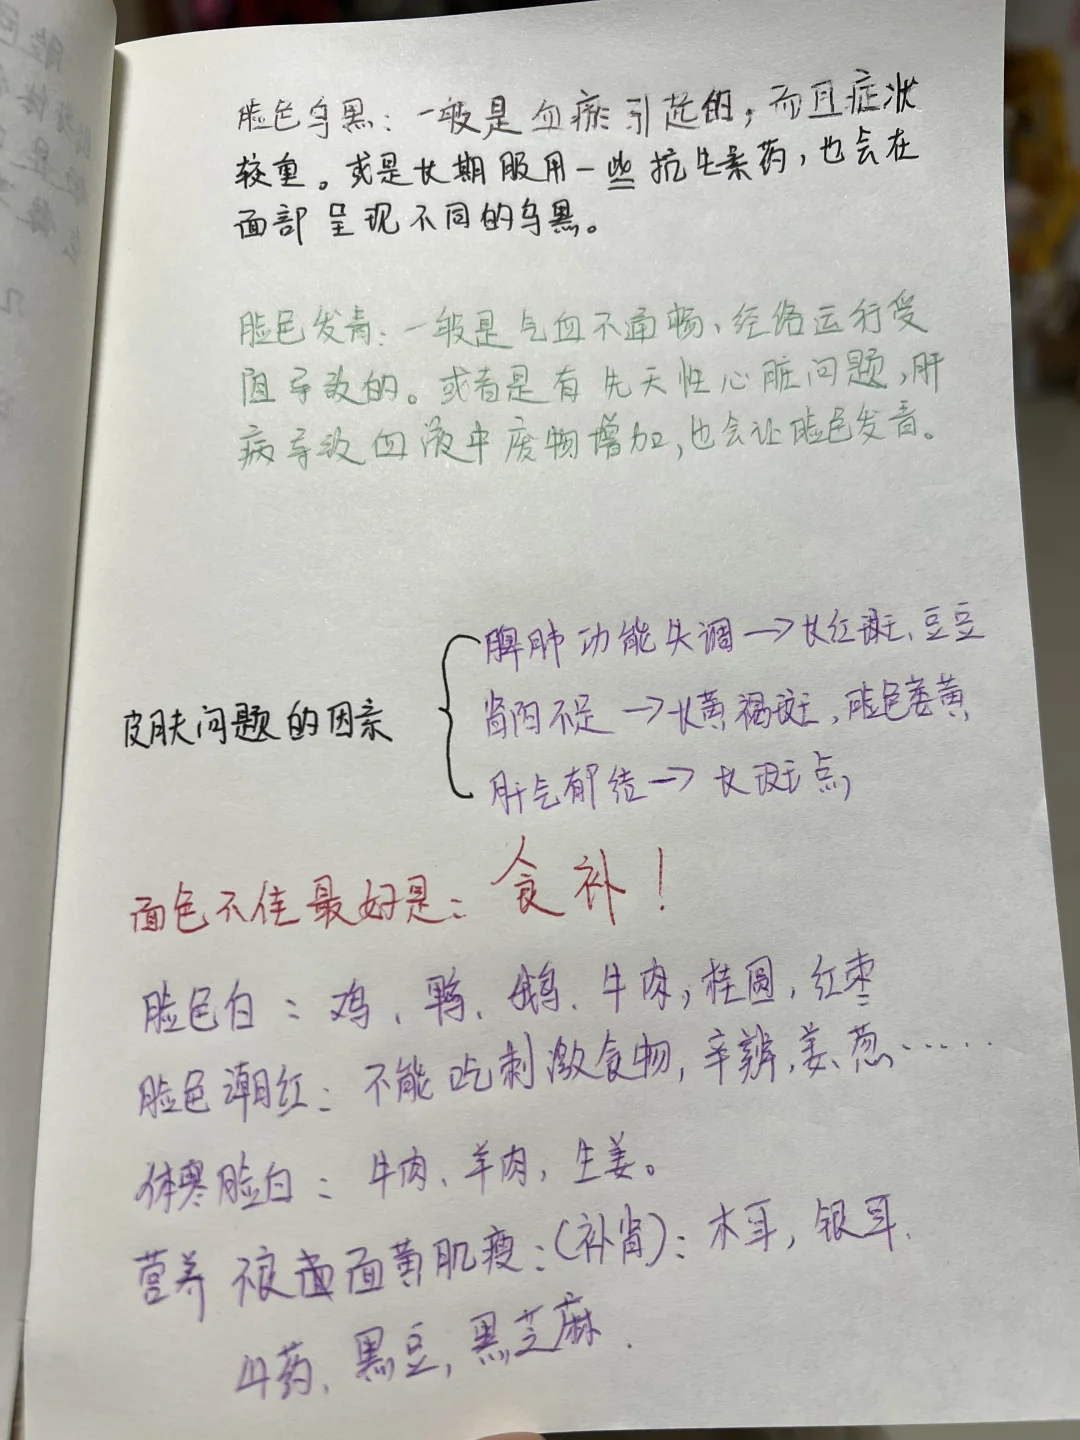 脸色乌黑：一般是血瘀引起的，而且症状
较重。或是长期服用一些抗生素药，也会在
面部呈现不同的乌黑。
脸色发青：一般是气血不通畅、经络运行受
阻导致的。或者是有先天性心脏问题，肝
病导致血液中废物增加，也会让脸色发青。
皮肤问题的因素
脾肺功能失调→长红斑、豆豆
肾阴不足→长黄褐斑，脸色萎黄
肝气郁结→长斑点，
面色不佳最好是：食补！
脸色白：鸡、鸭、鹅、牛肉，桂圆，红枣
脸色潮红：不能吃刺激食物，辛辨，姜、葱……
体寒脸白：牛肉、羊肉，生姜。
营养不良面黄肌瘦：（补肾）：木耳，银耳．
山药，黑豆，黑芝麻．